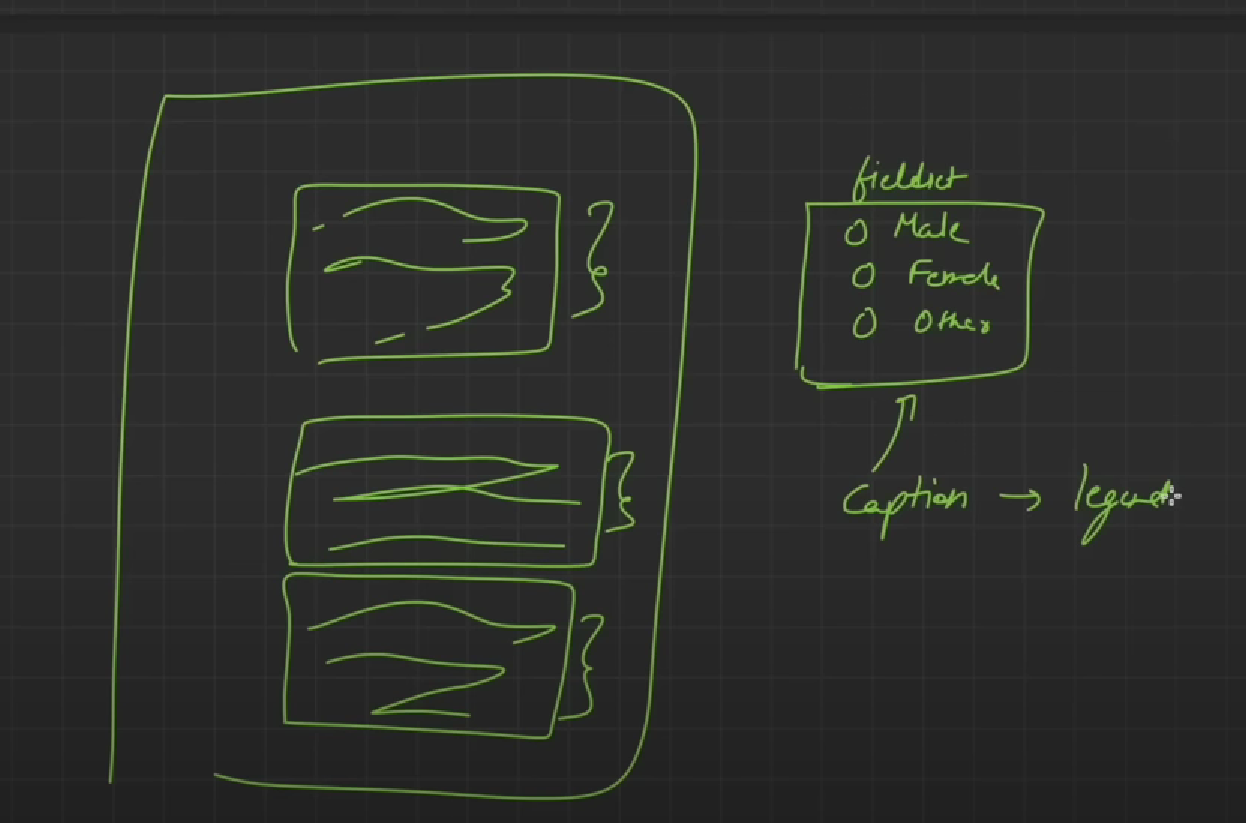 fieldset
O Male
O Female
O Other
Caption → legend